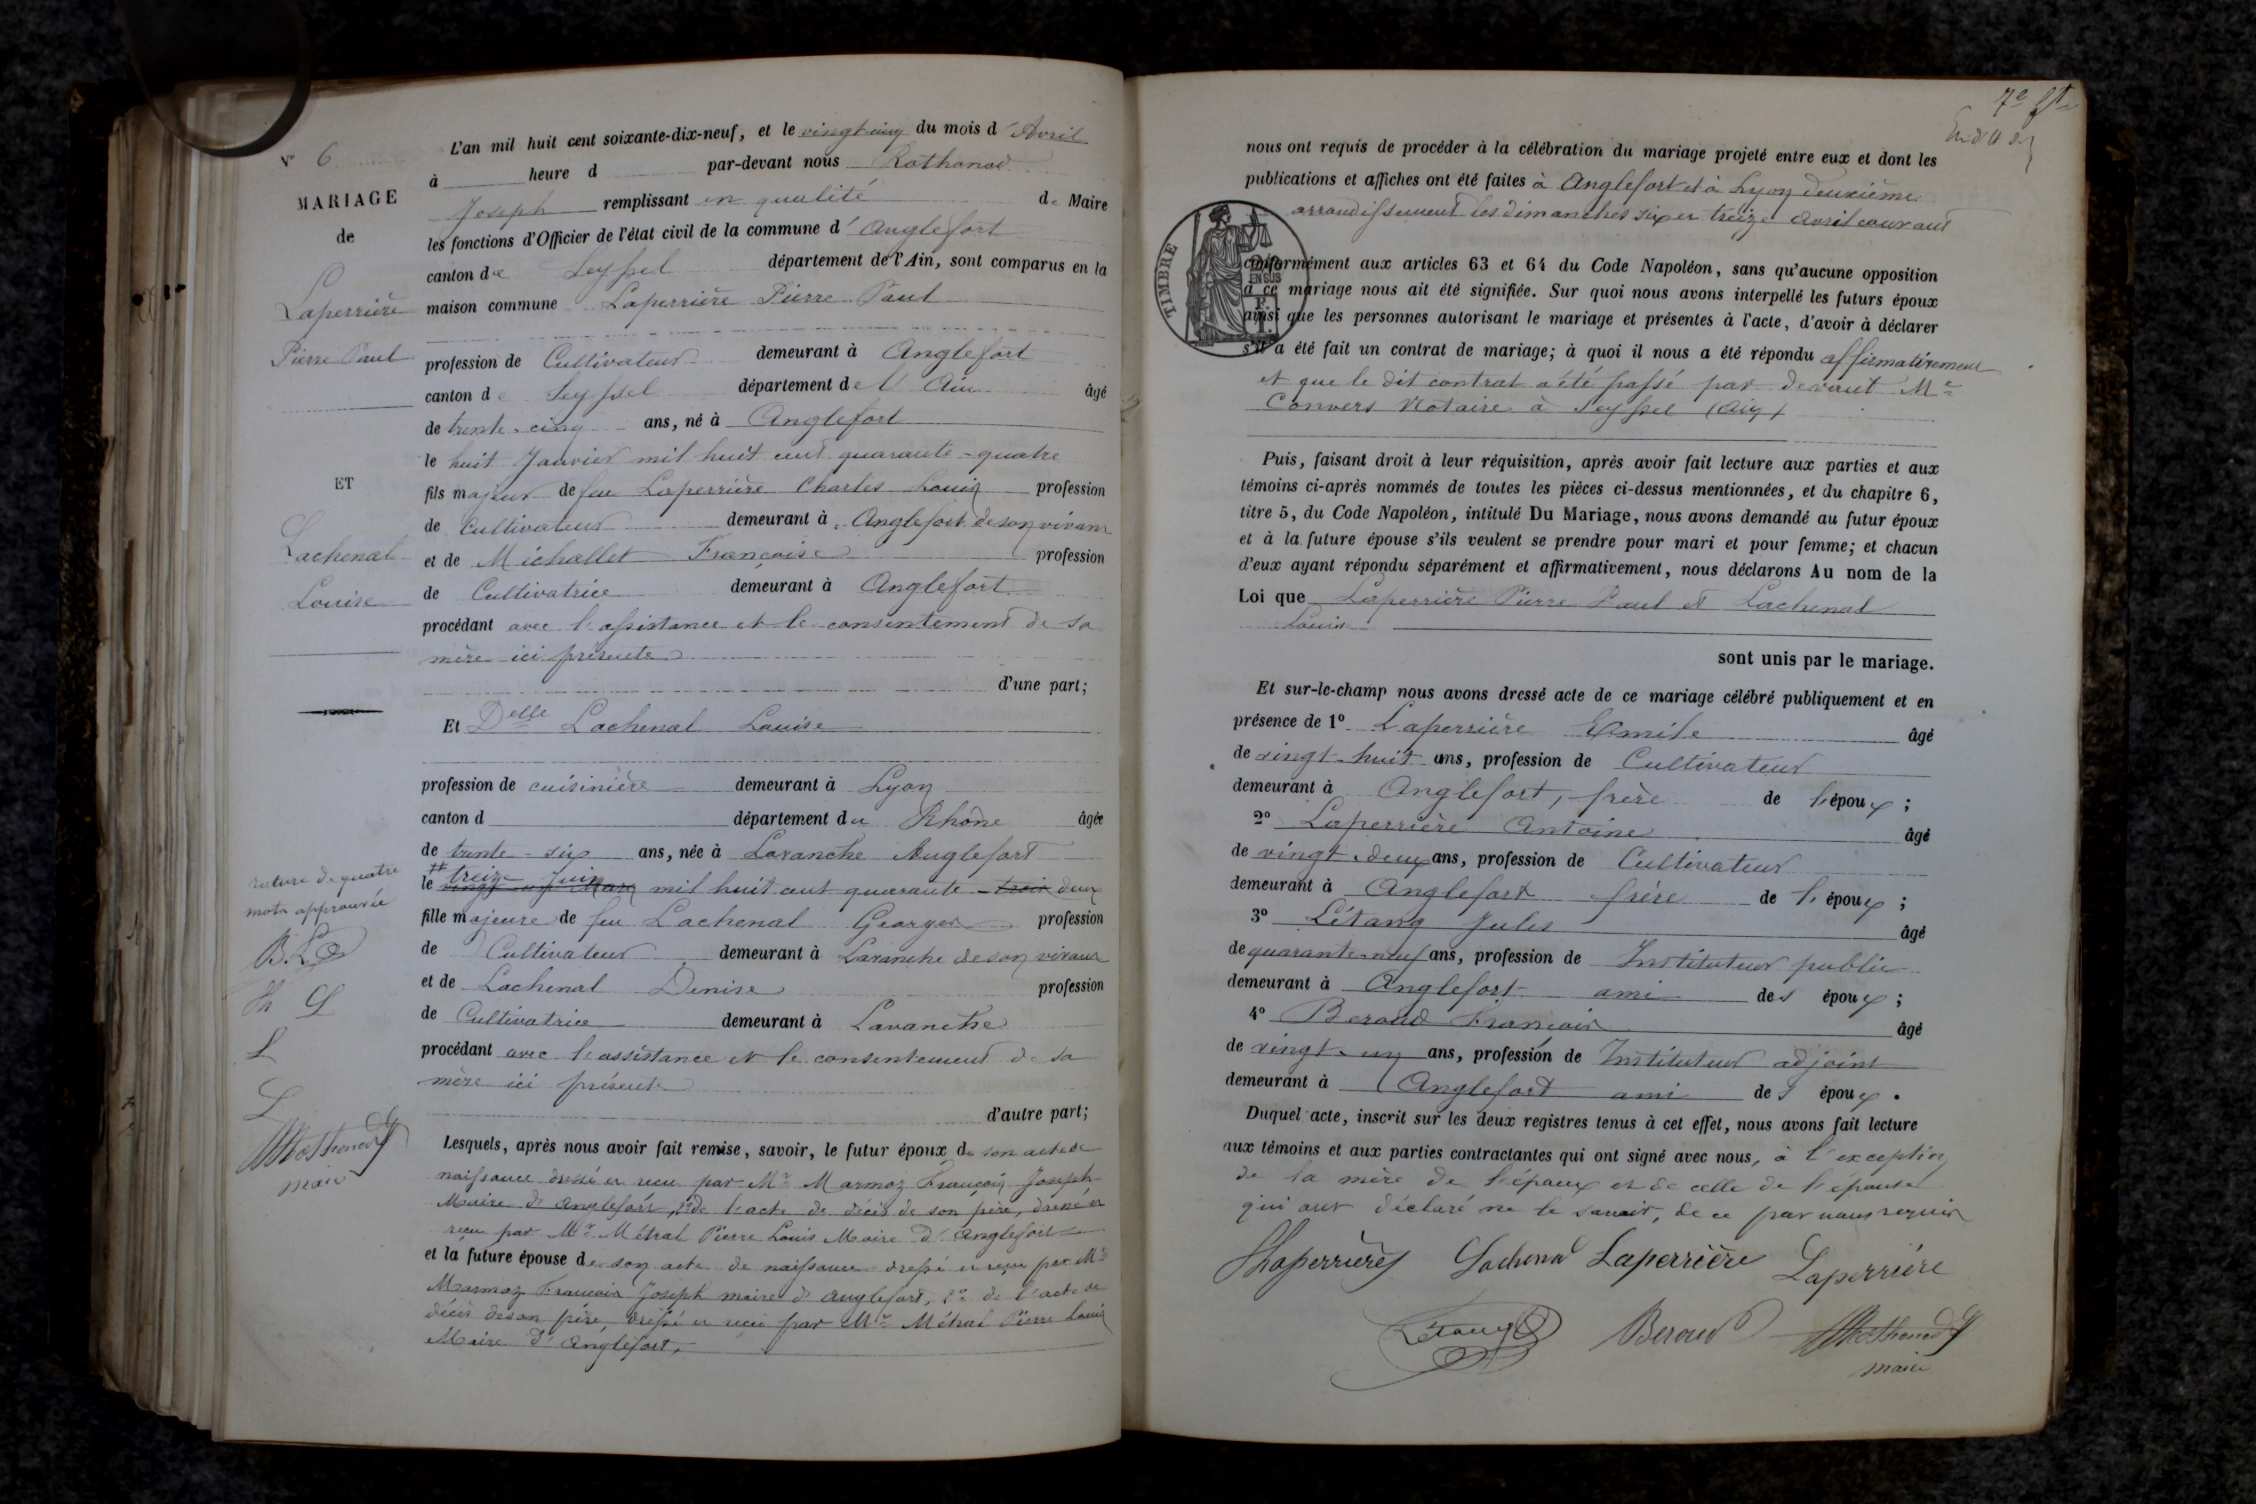 N° 6
MARIAGE
de
Laperrière
Pierre Paul
ET
Lachenal
Louise
rature de quatre
mots approuvée
B. L
L
L
Rothonod
maire
L'an mil huit cent soixante-dix-neuf, et le vingt cinq du mois d'Avril
à heure d par-devant nous Rothonod
Joseph remplissant en qualité de Maire
les fonctions d'Officier de l'état civil de la commune d'Anglefort
canton de Seyssel département de l'Ain, sont comparus en la
maison commune Laperrière Pierre Paul
profession de Cultivateur demeurant à Anglefort
canton de Seyssel département de l'Ain âgé
de trente-cinq ans, né à Anglefort
le huit Janvier mil huit cent quarante-quatre
fils majeur de feu Laperrière Charles Louis profession
de Cultivateur demeurant à Anglefort de son vivant
et de Michallet Françoise profession
de Cultivatrice demeurant à Anglefort
procédant avec l'assistance et le consentement de sa
mère ici présente
d'une part;
Et Delle Lachenal Louise
profession de cuisinière demeurant à Lyon
canton d département du Rhône âgée
de trente-six ans, née à Lavanche Anglefort
le treize Juin mil huit cent quarante-trois deux
fille majeure de feu Lachenal Georges profession
de Cultivateur demeurant à Lavanche de son vivant
et de Lachenal Denise profession
de Cultivatrice demeurant à Lavanche
procédant avec l'assistance et le consentement de sa
mère ici présente
d'autre part;
Lesquels, après nous avoir fait remise, savoir, le futur époux de son acte de
naissance dressé et reçu par Mr Marmoz François Joseph
Maire d'Anglefort, 2° de l'acte de décès de son père, dressé et
reçu par Mr Métral Pierre Louis Maire d'Anglefort
et la future épouse de son acte de naissance dressé et reçu par Mr
Marmoz François Joseph maire d'Anglefort, 2° de l'acte de
décès de son père, dressé et reçu par Mr Métral Pierre Louis
Maire d'Anglefort,
7e
nous ont requis de procéder à la célébration du mariage projeté entre eux et dont les
publications et affiches ont été faites à Anglefort et à Lyon deuxième
arrondissement les dimanches six et treize avril courant
TIMBRE
EN SUS
conformément aux articles 63 et 64 du Code Napoléon, sans qu'aucune opposition
à ce mariage nous ait été signifiée. Sur quoi nous avons interpellé les futurs époux
ainsi que les personnes autorisant le mariage et présentes à l'acte, d'avoir à déclarer
s'il a été fait un contrat de mariage; à quoi il nous a été répondu affirmativement
et que le dit contrat a été passé par devant Me
Convers Notaire à Seyssel (Ain)
Puis, faisant droit à leur réquisition, après avoir fait lecture aux parties et aux
témoins ci-après nommés de toutes les pièces ci-dessus mentionnées, et du chapitre 6,
titre 5, du Code Napoléon, intitulé Du Mariage, nous avons demandé au futur époux
et à la future épouse s'ils veulent se prendre pour mari et pour femme; et chacun
d'eux ayant répondu séparément et affirmativement, nous déclarons Au nom de la
Loi que Laperrière Pierre Paul et Lachenal
Louise
sont unis par le mariage.
Et sur-le-champ nous avons dressé acte de ce mariage célébré publiquement et en
présence de 1° Laperrière Emile âgé
de vingt-huit ans, profession de Cultivateur
demeurant à Anglefort, frère de l'époux;
2° Laperrière Antoine âgé
de vingt-deux ans, profession de Cultivateur
demeurant à Anglefort frère de l'époux;
3° Létang Jules âgé
de quarante-neuf ans, profession de Instituteur public
demeurant à Anglefort ami des époux;
4° Beroud François âgé
de vingt-un ans, profession de Instituteur adjoint
demeurant à Anglefort ami des époux.
Duquel acte, inscrit sur les deux registres tenus à cet effet, nous avons fait lecture
aux témoins et aux parties contractantes qui ont signé avec nous, à l'exception
de la mère de l'époux et de celle de l'épouse
qui ont déclaré ne le savoir, de ce par nous requis
Laperrière Lachenal Laperrière Laperrière
Létang Beroud Rothonod
maire